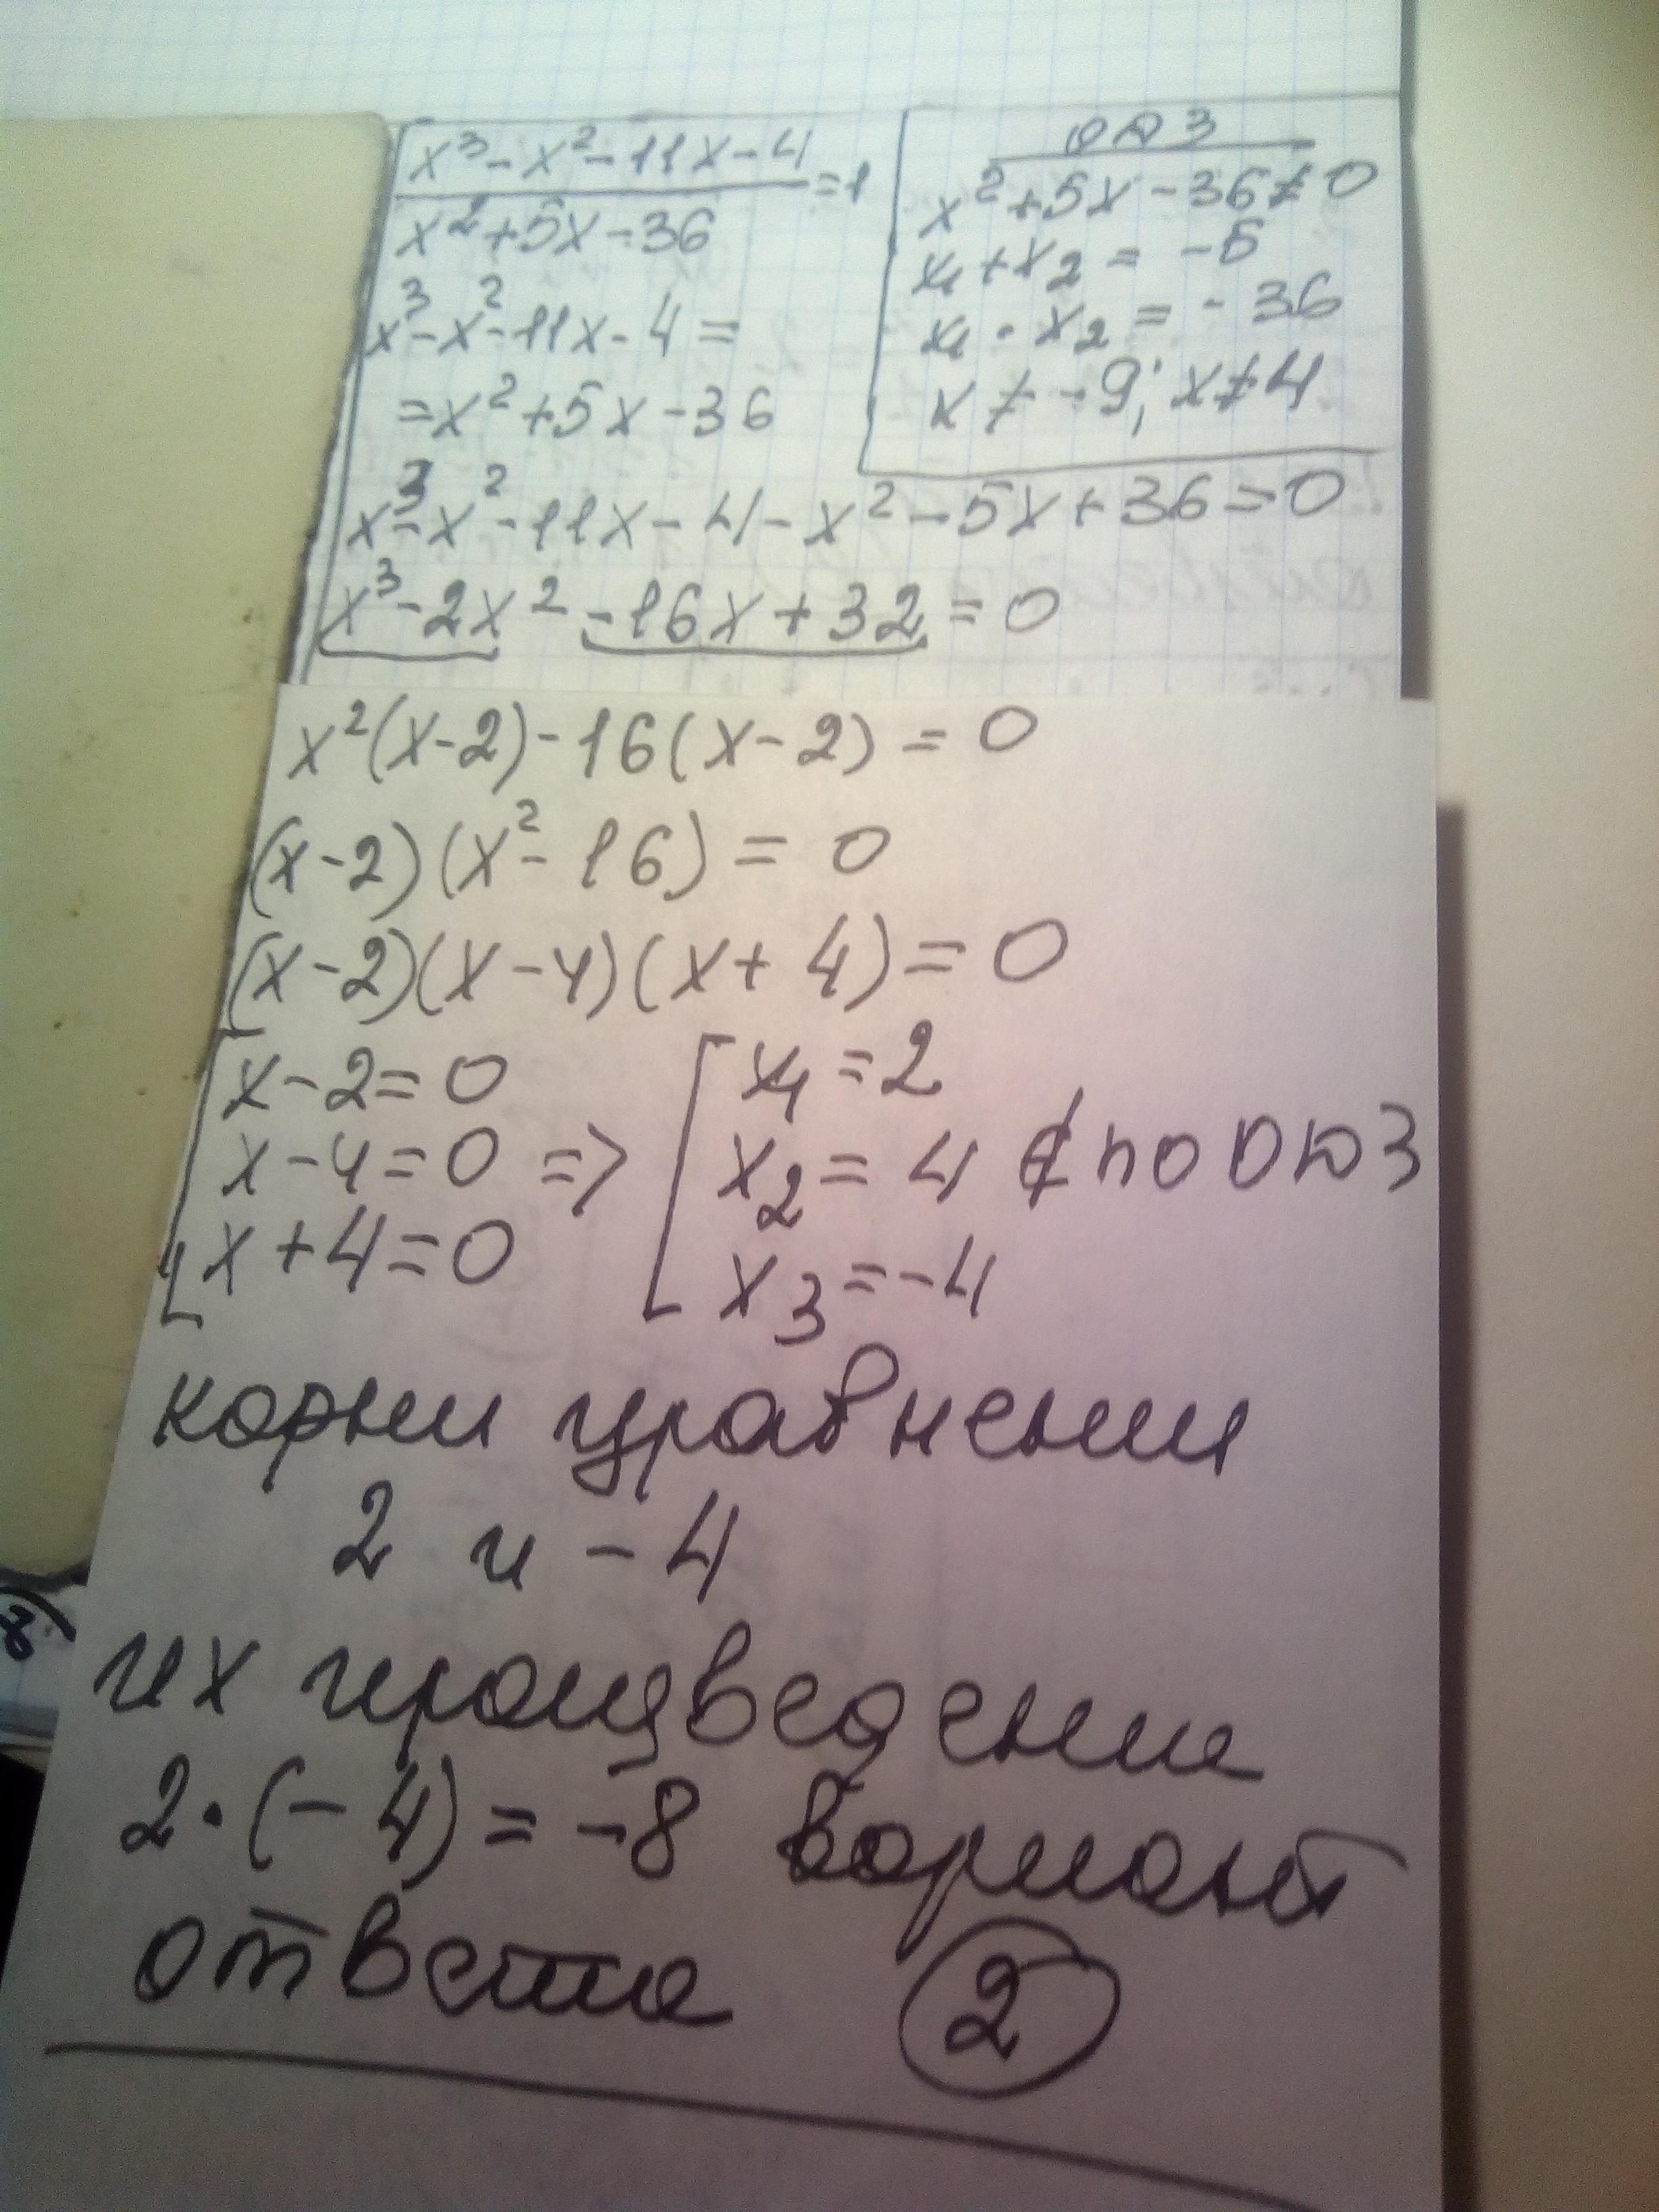 x³-x²-11x-4
/ x²+5x-36 =1
x³-x²-11x-4=
=x²+5x-36
ОДЗ
x²+5x-36≠0
x₁+x₂=-5
x₁·x₂=-36
x≠-9; x≠4
x³-x²-11x-4-x²-5x+36=0
x³-2x²-16x+32=0
x²(x-2)-16(x-2)=0
(x-2)(x²-16)=0
(x-2)(x-4)(x+4)=0
x-2=0
x-4=0 =>
x+4=0
x₁=2
x₂=4 ∉ по ОДЗ
x₃=-4
корни уравнения
2 и -4
их произведение
2·(-4)=-8 вариант
ответа 2